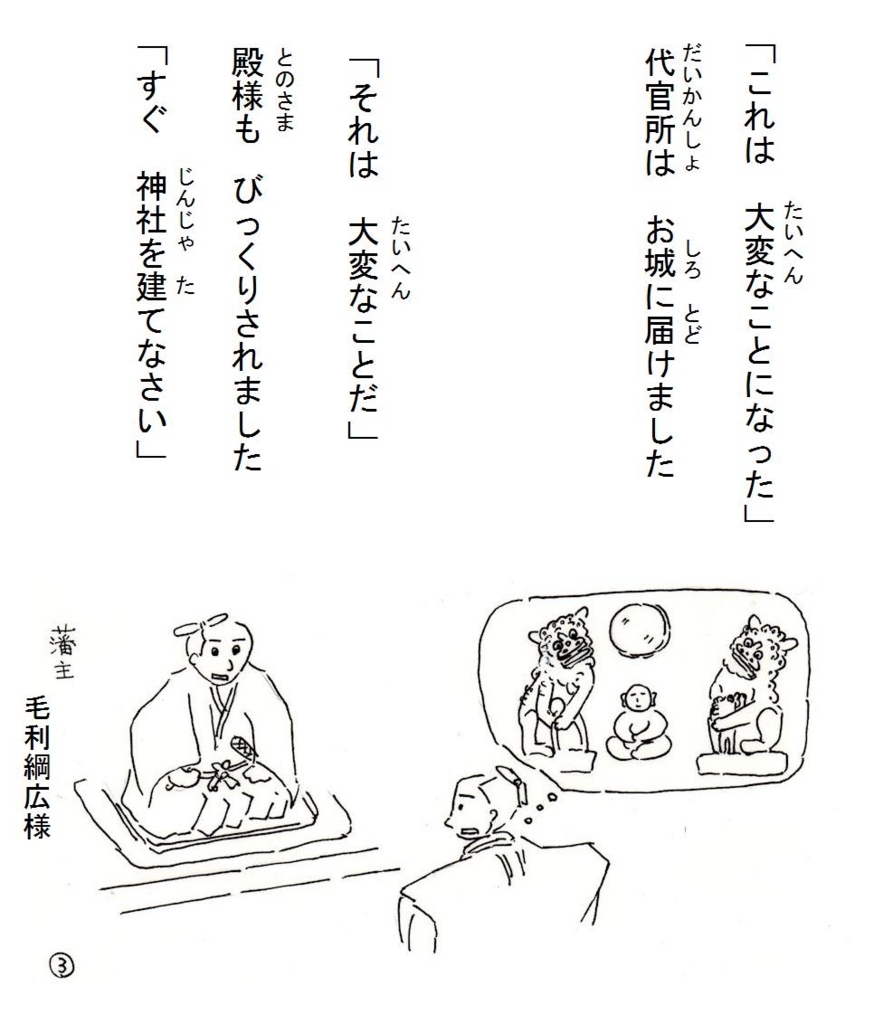 「これは　大変なことになった」
たいへん
代官所は　お城に届けました
だいかんしょ　しろ　とど
「それは　大変なことだ」
たいへん
殿様も　びっくりされました
とのさま
「すぐ　神社を建てなさい」
じんじゃ　た
藩主
毛利綱広様
③